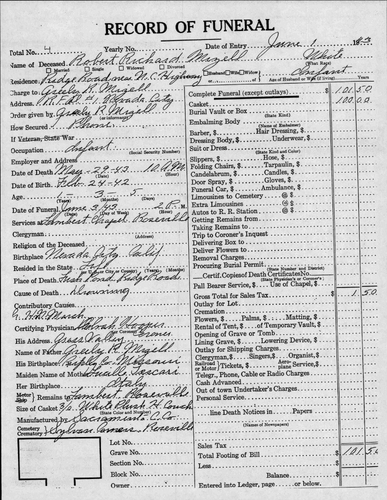 RECORD OF FUNERAL
Total No. 4 Yearly No. Date of Entry June 1
Name of Deceased Robert Richard Mizell White
Married Single Widowed Divorced Husband Wife Widow (What Race) Infant
Residence Ridge Road, near N.C. Highway
Charge to Greeley R. Mizell
Address R.F.D. #1 Nevada City
Order given by Greeley R. Mizell
How Secured Phone
If Veteran, State War
Occupation Infant (Social Security Number)
Employer and Address
Date of Death May - 29 - 43 10 A.M. (Hour)
Date of Birth Feb - 24 - 42
Age 1 3 5
Date of Funeral June 3/43 2 P.M.
Services at Lambert Chapel Roseville
Clergyman
Religion of the Deceased
Birthplace Nevada City, Calif
Resided in the State
Place of Death Irish Pond, Ridge Road
Cause of Death Drowning
Contributory Causes
Certifying Physician Coroner
His Address Grass Valley
Name of Father Greeley R. Mizell
His Birthplace Missouri
Maiden Name of Mother Lucille
Her Birthplace Italy
Remains to Lambert Roseville
Size of Casket White Plush H. Couch
Manufactured by Sacramento C. Co
Cemetery Crematory Sylvan Cemetery Roseville
Lot No.
Grave No.
Section No.
Block No.
Owner
Complete Funeral (except outlays) $ 101.50
Casket 100.00
Burial Vault or Box (State Kind)
Embalming Body (Name of Embalmer)
Barber, $ Hair Dressing, $
Dressing Body, $ Underwear, $
Suit or Dress (State Kind and Color)
Slippers, $ Hose, $
Folding Chairs, $ Tarpaulin, $
Candelabrum, $ Candles, $
Door Spray, $ Gloves, $
Funeral Car, $ Ambulance, $
Limousines to Cemetery @ $
Extra Limousines @ $
Autos to R. R. Station @ $
Getting Remains from
Taking Remains to
Trip to Coroner's Inquest
Delivering Box to
Deliver Flowers to
Removal Charges
Procuring Burial Permit (State Number and District)
Certif. Copies of Death Certificate
Pall Bearer Service, $ Use of Chapel, $
Gross Total for Sales Tax $ 1.50
Outlay for Lot
Cremation
Flowers, $ Palms, $ Matting, $
Rental of Tent, $ of Temporary Vault, $
Opening of Grave or Tomb
Lining Grave, $ Lowering Device, $
Outlay for Shipping Charges
Clergyman, $ Singers, $ Organist, $
Railroad Tickets, $ Aeroplane Service, $
Telegr., Phone, Cable or Radio Charges
Cash Advanced
Out of town Undertaker's Charges
Personal Service
line Death Notices in Papers
(Names of Newspapers)
Sales Tax
Total Footing of Bill $ 101.50
Less
Balance
Entered into Ledger, page or below.